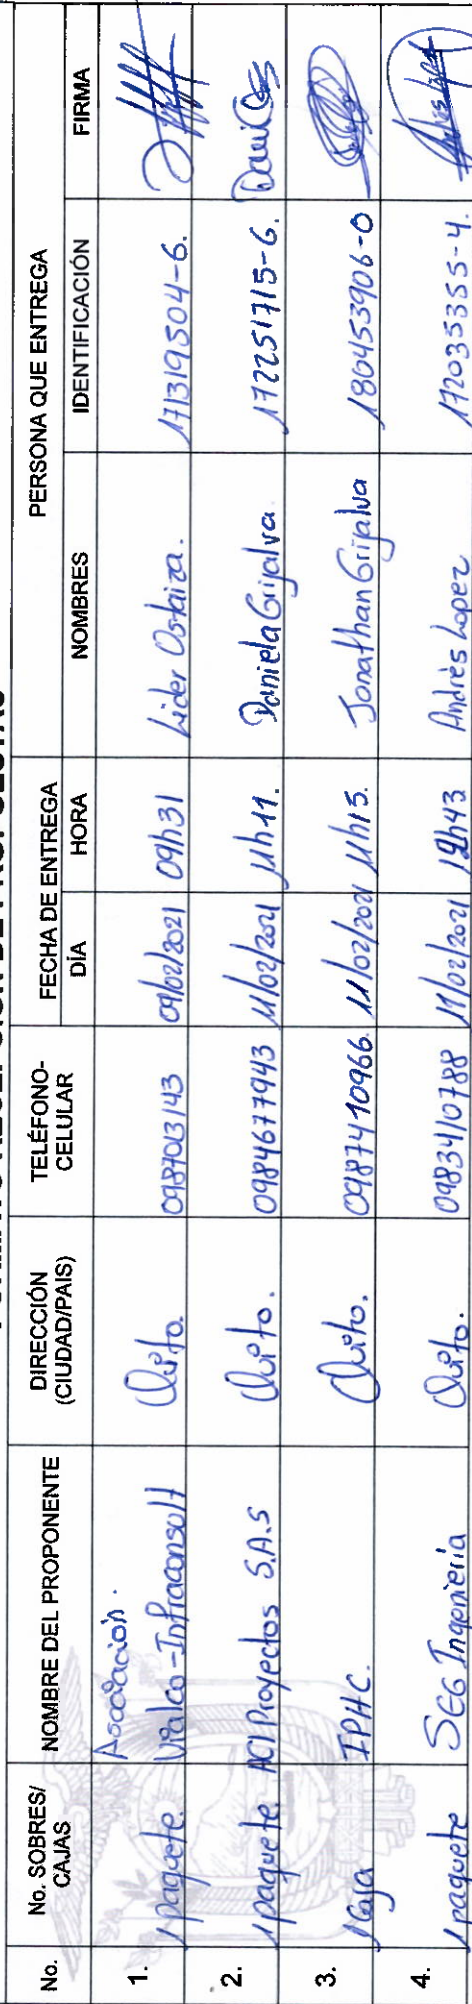 No. No. SOBRES/ CAJAS NOMBRE DEL PROPONENTE DIRECCIÓN (CIUDAD/PAIS) TELÉFONO-CELULAR FECHA DE ENTREGA PERSONA QUE ENTREGA
DÍA HORA NOMBRES IDENTIFICACIÓN FIRMA
1. 1 paquete. Asociación. Vialco-Infraconsult Quito. 0987013143 09/02/2021 09h31 Lider Ostaiza. 171319504-6.
2. 1 paquete. ACI Proyectos S.A.S Quito. 0984677943 11/02/2021 11h11. Daniela Grijalva. 172251715-6.
3. 1 Caja IPHC. Quito. 0987410966 11/02/2021 11h15. Jonathan Grijalva 180453906-0
4. 1 paquete SEG Ingeniería Quito. 0983410788 11/02/2021 12h43 Andrés Lopez 172035355-4.